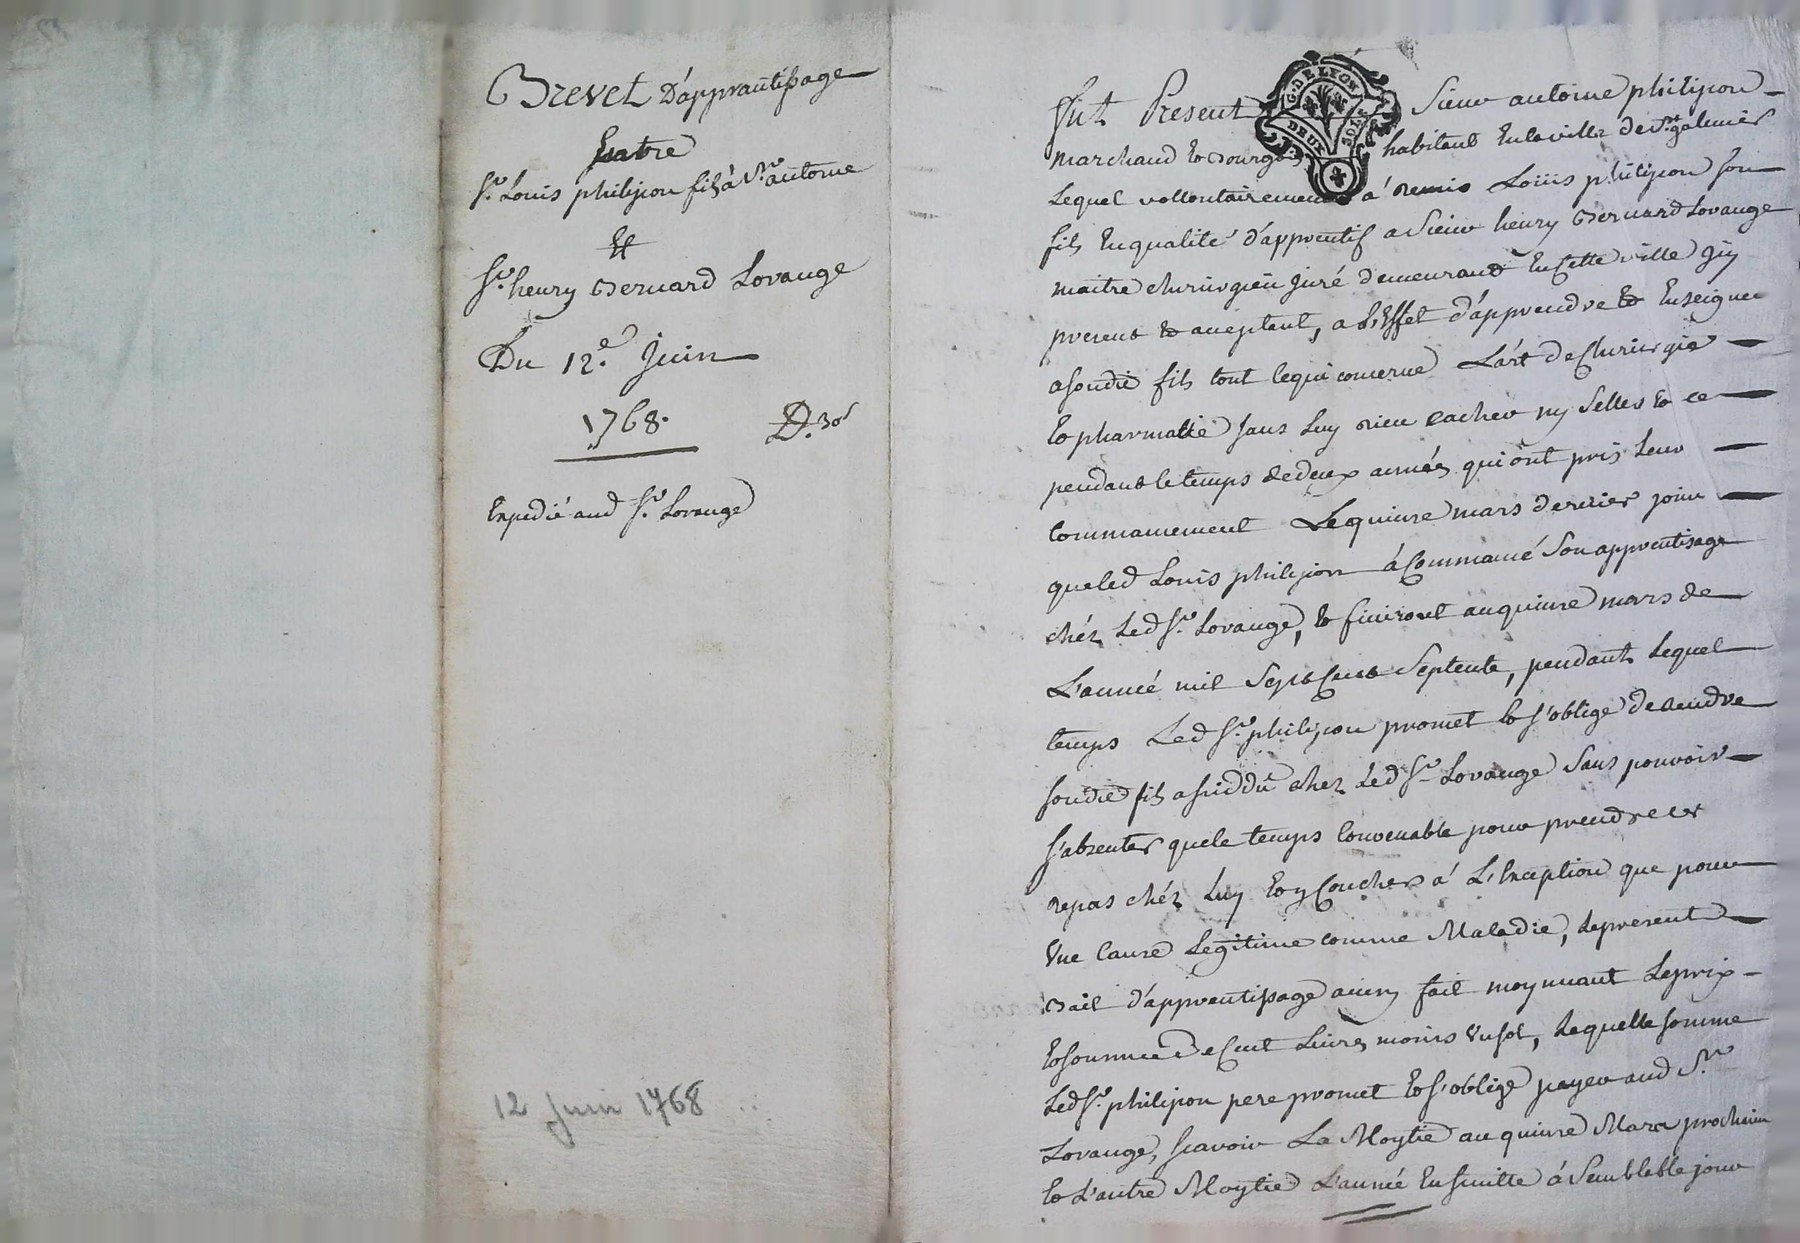 Brevet D'apprantissage
Entre
Sr. Louis philipon fils à Sr. antoine
Et
Sr. henry Bernard Lorange
Du 12e. Juin
1768.
D. 30s
Expedié aud Sr. Lorange
12 Juin 1768
G. DE LYON
DEUX SOLS
Fut Present Sieur antoine philipon
marchand Et Bourgois habitant En la ville de St. galmier
Lequel vollontairement a remis Loüis philipon son
fils En qualité d'apprentif a Sieur henry Bernard Lorange
maitre chirurgien Juré demeurant En Cette ville Jcy
present Et aceptant, a L'Effet d'apprendre Et Enseigner
a sondit fils tout ce qui concerne L'art de Chirurgie
Et pharmatie sans Luy rien cacher ny Seller Et ce
pendant le temps de deux années qui ont pris Leur
Commancement Le quinze mars dernier jour
que led Louis philipon à Commancé Son apprentisage
chéz Led Sr. Lorange, Et finiront au quinze mars de
L'année mil Sept Cent Septente, pendant Lequel
temps Led Sr. philipon promet Et s'oblige de rendre
sondit fils assiddu chez Led Sr. Lorange Sans pouvoir
s'absenter que le temps Convenable pour prendre ses
repas chéz Luy Et y Coucher à L'Exception que pour
Une Cause Legitime comme Maladie, Le present
Bail d'apprentissage ainsy fait moynnant Le prix
Et somme de Cent Livres moins Un sol, Laquelle somme
Led Sr. philipon pere promet Et s'oblige payer aud Sr.
Lorange, scavoir La Moytié au quinze Mars prochain
Et L'autre Moytié L'année En suitte à Semblable jour